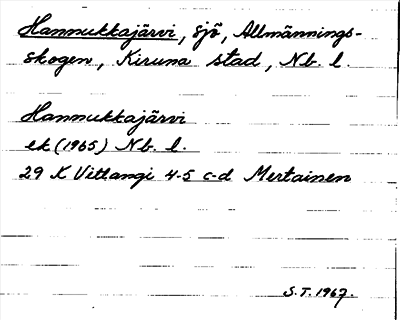 Hannukkajärvi, sjö, Allmännings-
skogen, Kiruna stad, Nb. l.
Hannukkajärvi
ek (1965) Nb. l.
29 K Vittangi 4-5 c-d Mertainen
S.T. 1967.